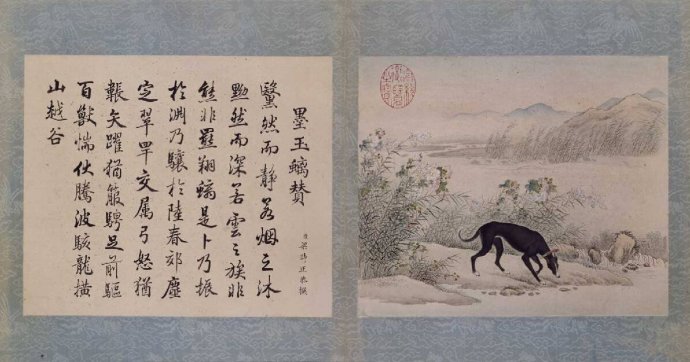 墨玉螭贊
臣梁詩正恭撰
黳然而靜若烟之沐
黝然而深若雲之族非
熊非羆翔螭是卜乃振
於淵乃驤於陸春郊塵
定翠罕交属弓怒猶
韔矢躍猶箙騁足前驅
百獸惴伏騰波駭龍橫
山越谷